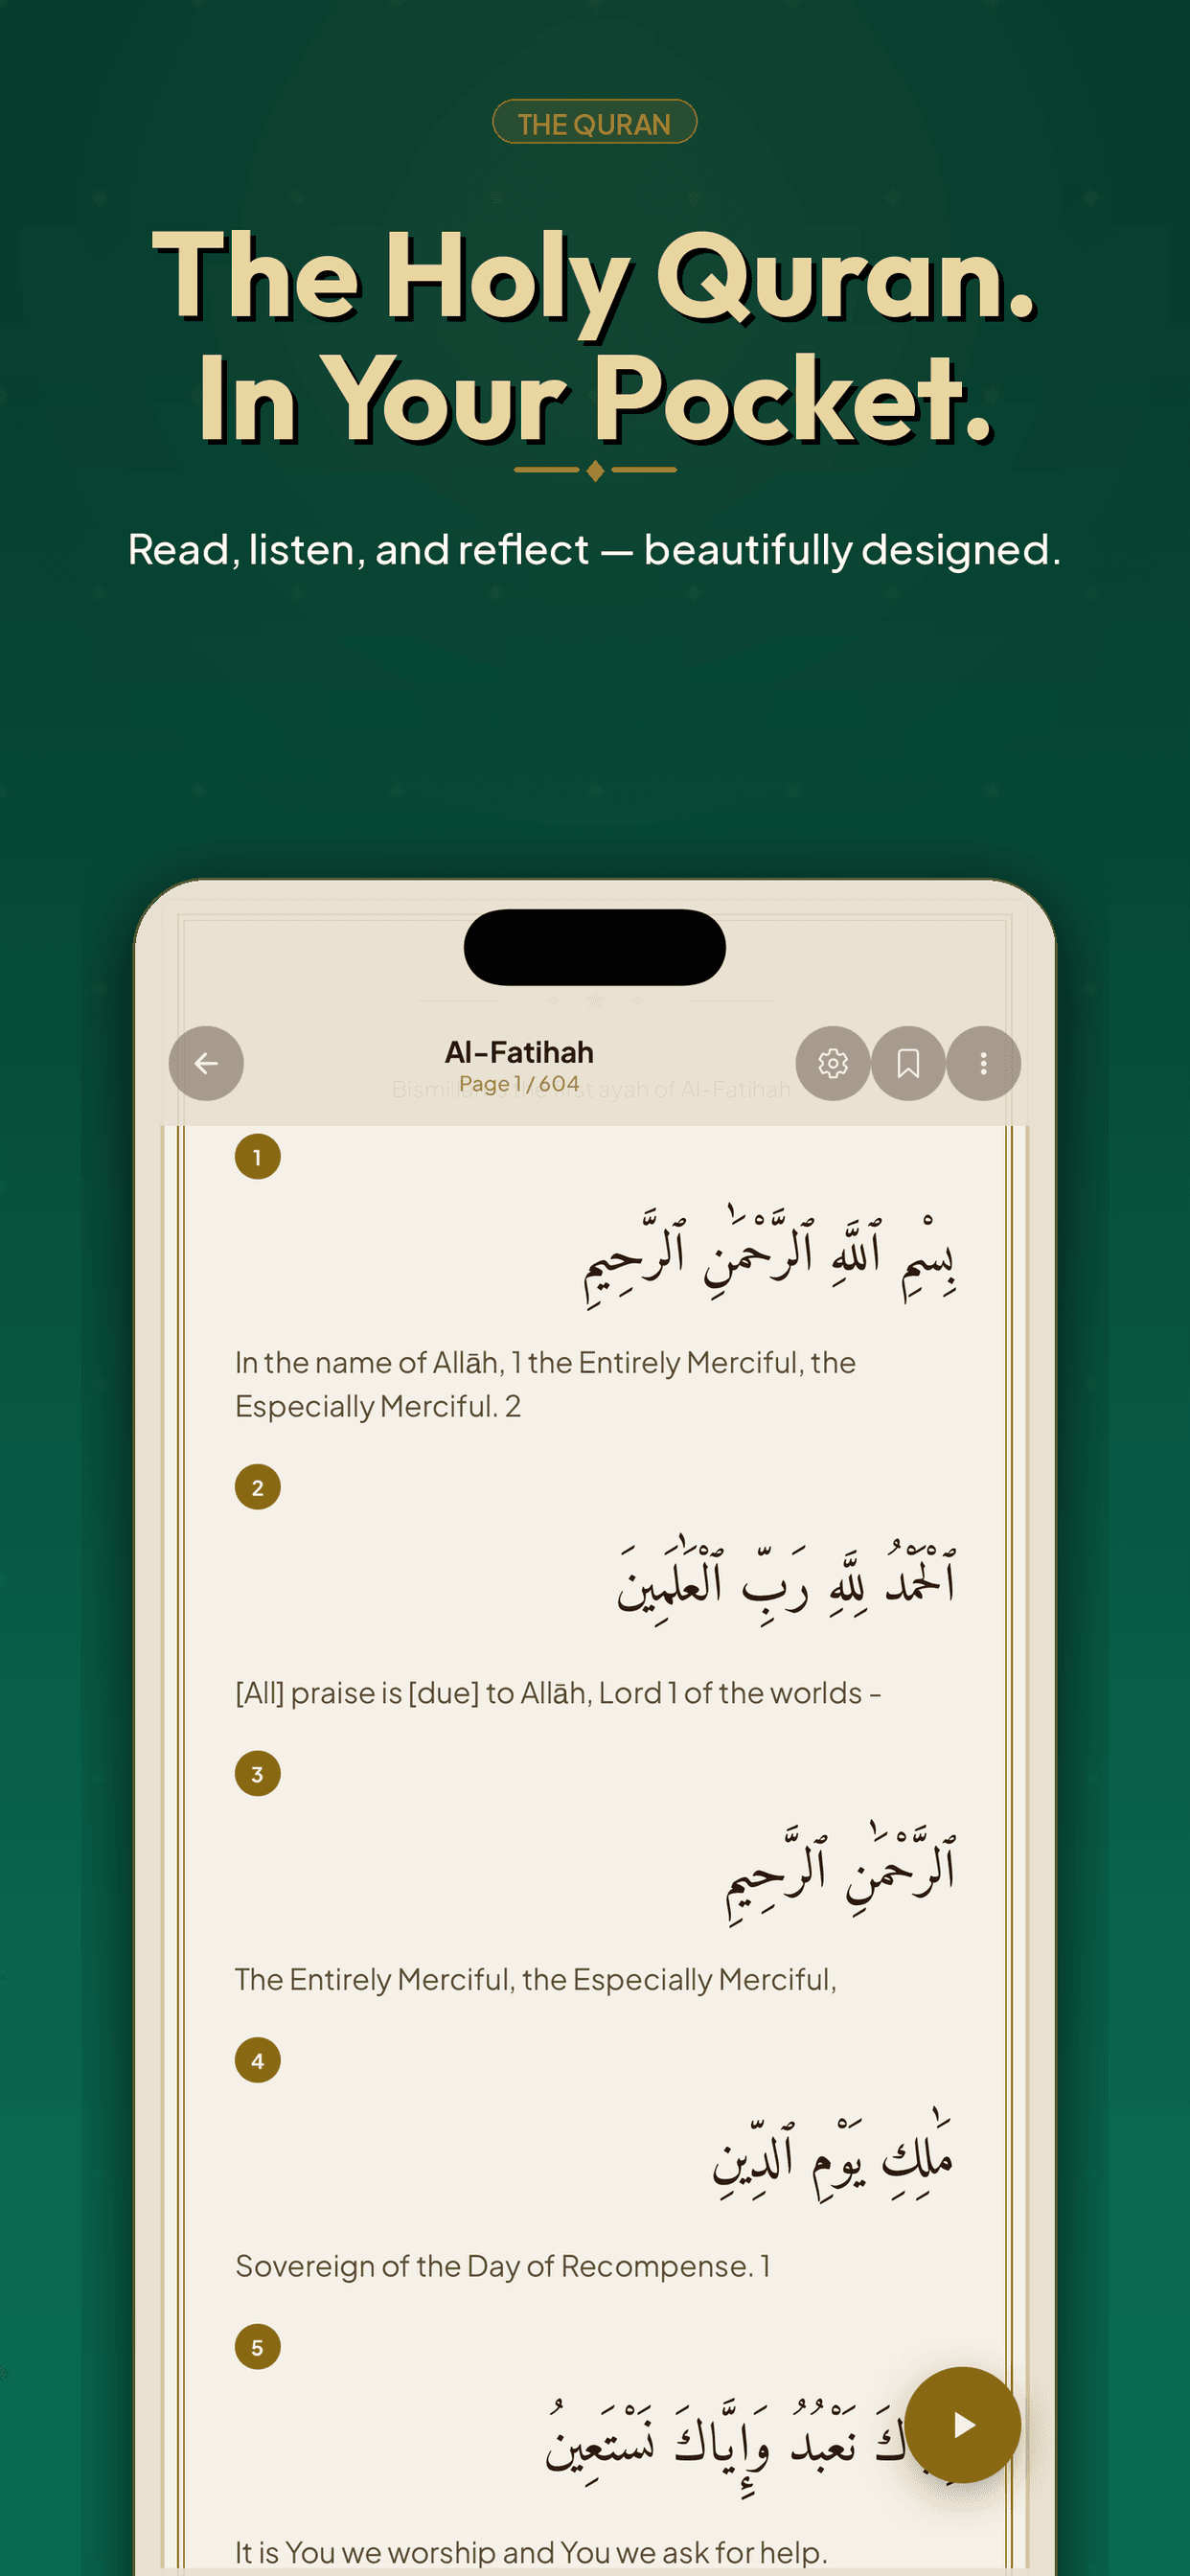 THE QURAN
The Holy Quran.
In Your Pocket.
Read, listen, and reflect — beautifully designed.
Al-Fatihah
Page 1 / 604
the first ayah of Al-Fatihah.
1
بِسْمِ ٱللَّهِ ٱلرَّحْمَٰنِ ٱلرَّحِيمِ
In the name of Allāh, 1 the Entirely Merciful, the
Especially Merciful. 2
2
ٱلْحَمْدُ لِلَّهِ رَبِّ ٱلْعَٰلَمِينَ
[All] praise is [due] to Allāh, Lord 1 of the worlds -
3
ٱلرَّحْمَٰنِ ٱلرَّحِيمِ
The Entirely Merciful, the Especially Merciful,
4
مَٰلِكِ يَوْمِ ٱلدِّينِ
Sovereign of the Day of Recompense. 1
5
نَعْبُدُ وَإِيَّاكَ نَسْتَعِينُ
It is You we worship and You we ask for help.